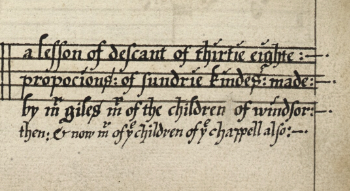 a lesson of descant of thirtie eighte :—
propocions: of sundrie kindes: made:
by mr giles mr of the children of windsor:
then: & now mr of ye children of ye chappell also:—